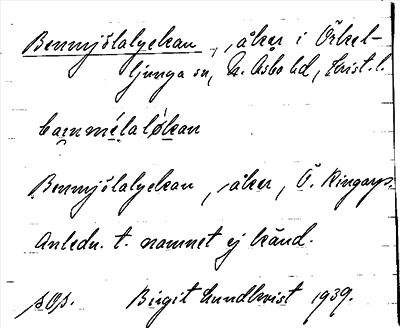 Benmjölalyckan, åker i Örkel-
ljunga sn, N. Åsbo hd, Krist. l.
Benmjölalyckan, åker, Ö. Ringarp.
Anledn. t. namnet ej känd.
Birgit Lundkvist 1939.